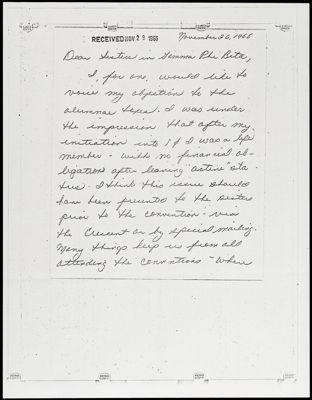 RECEIVED NOV 29 1966 November 26, 1966
Dear Sisters in Gamma Phi Beta,
I, for one, would like to
voice my objection to the
alumnae taxes. I was under
the impression that after my
initiation into I was a life
member - with no financial ob-
ligations after leaving "active" sta-
tus. I think this issue should
have been presented to the sisters
prior to the convention - via
the Crescent or by special mailing.
Many things keep us from all
attending the conventions - when